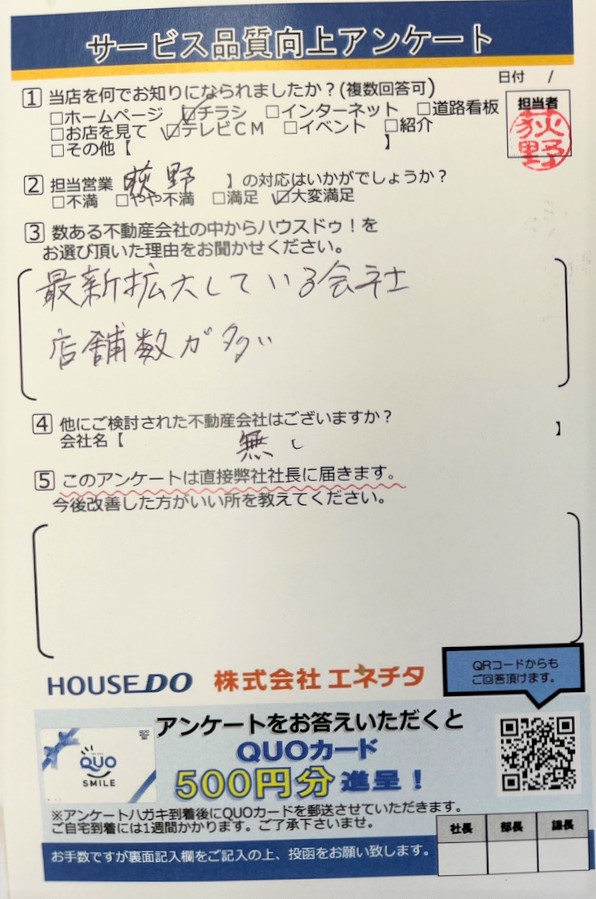 サービス品質向上アンケート
日付 /
1 当店を何でお知りになられましたか？(複数回答可)
□ホームページ ☑チラシ □インターネット □道路看板
□お店を見て ☑テレビCM □イベント □紹介
□その他【 】
担当者
荻野
2 担当営業 荻野 】の対応はいかがでしょうか？
□不満 □やや不満 □満足 ☑大変満足
3 数ある不動産会社の中からハウスドゥ！を
お選び頂いた理由をお聞かせください。
最新拡大している会社
店舗数が多い
4 他にご検討された不動産会社はございますか？
会社名【 無し 】
5 このアンケートは直接弊社社長に届きます。
今後改善した方がいい所を教えてください。
HOUSEDO 株式会社 エネチタ
QRコードからも
ご回答頂けます。
アンケートをお答えいただくと
QUOカード
500円分 進呈！
QUO
SMILE
※アンケートハガキ到着後にQUOカードを郵送させていただきます。
ご自宅到着には1週間かかります。ご了承下さいませ。
社長 部長 課長
お手数ですが裏面記入欄をご記入の上、投函をお願い致します。